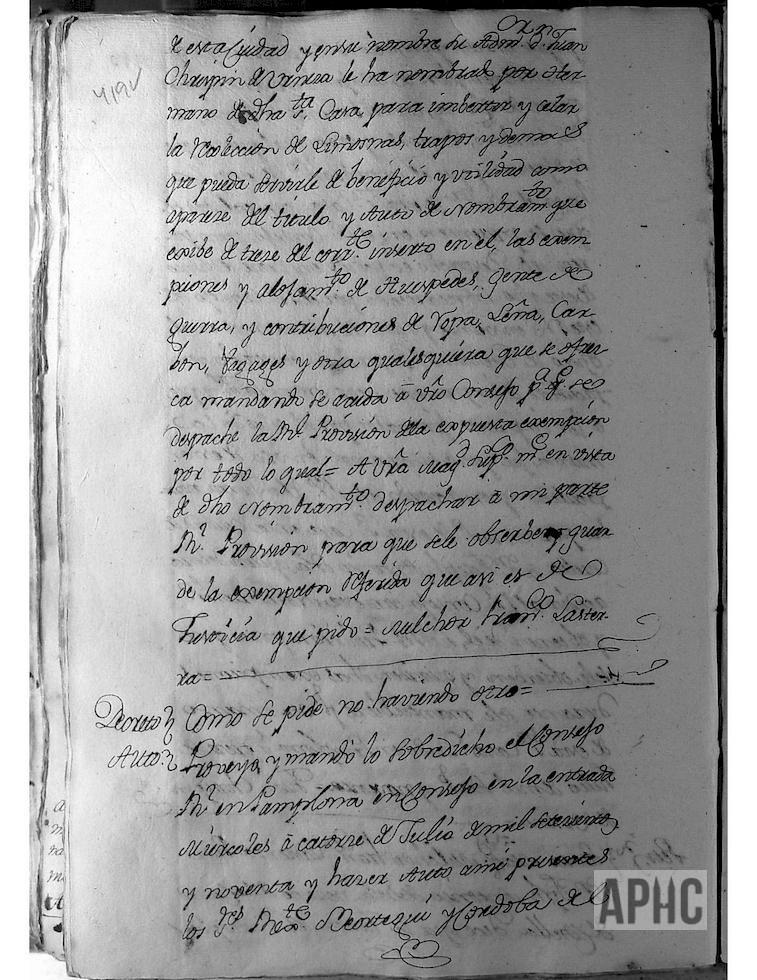 419v
de esta Ciudad y en su nombre su Admr. Dn. Juan
Chrispin de Urniza le ha nombrado por Her-
mano de dha Sta. Casa, para imbertar y celar
la Recoleccion de Limosnas, trapos y demas
que pueda servirle de beneficio y utilidad como
aparece del titulo y Auto de Nombramto. que
exibe de trece del corrte. inserto en el, las exem
pciones y alojamto. de Huespedes, Gente de
guerra, y contribuciones de Ropa, Leña, Car-
bon, Vagages y otra qualesquiera que se ofrez-
ca mandando se acuda a vro Consejo pa. qe. se
despache la Rl. Provision de la expuesta exempcion
por todo lo qual = A Vra Magd. Supco. me. en vista
de dho Nombramto. despachar a mi parte
Rl. Provision para que se le observe y guar
de la exempcion referida que asi es de
Justicia que pido = Melchor Franco. Laster-
ra =
Decreto Como se pide no haviendo otro =
Auto Proveyo, y mandó lo sobredicho el Consejo
Rl. en Pamplona en Consejo en la entrada
Miércoles á catorze de Julio de mil setecientos
y noventa y hazer Auto a mi presentes
los Sres. Rexte. Beortegui y Cordoba del
APHC